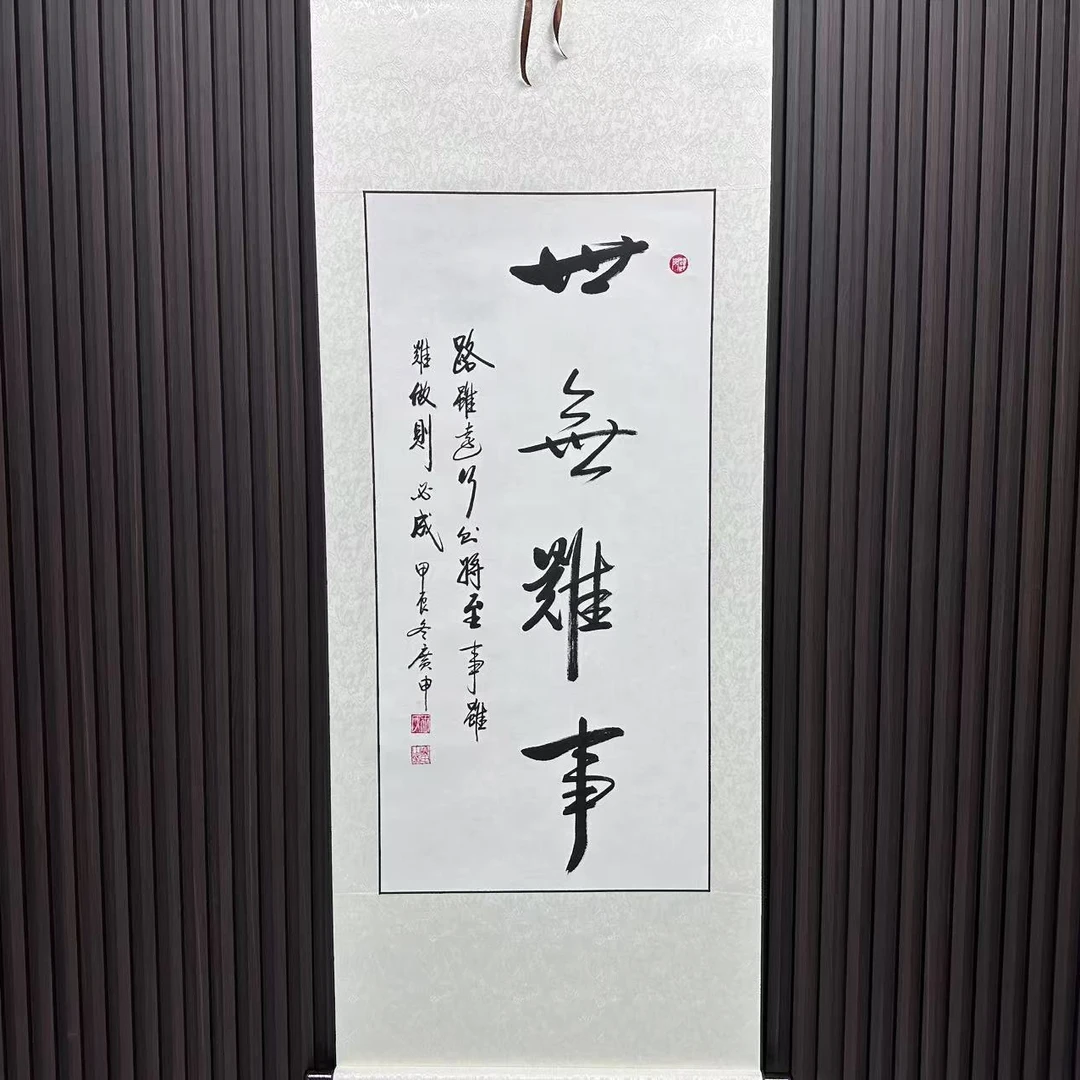 世無難事
路雖遠行必將至事雖
難做則必成甲辰冬廣申